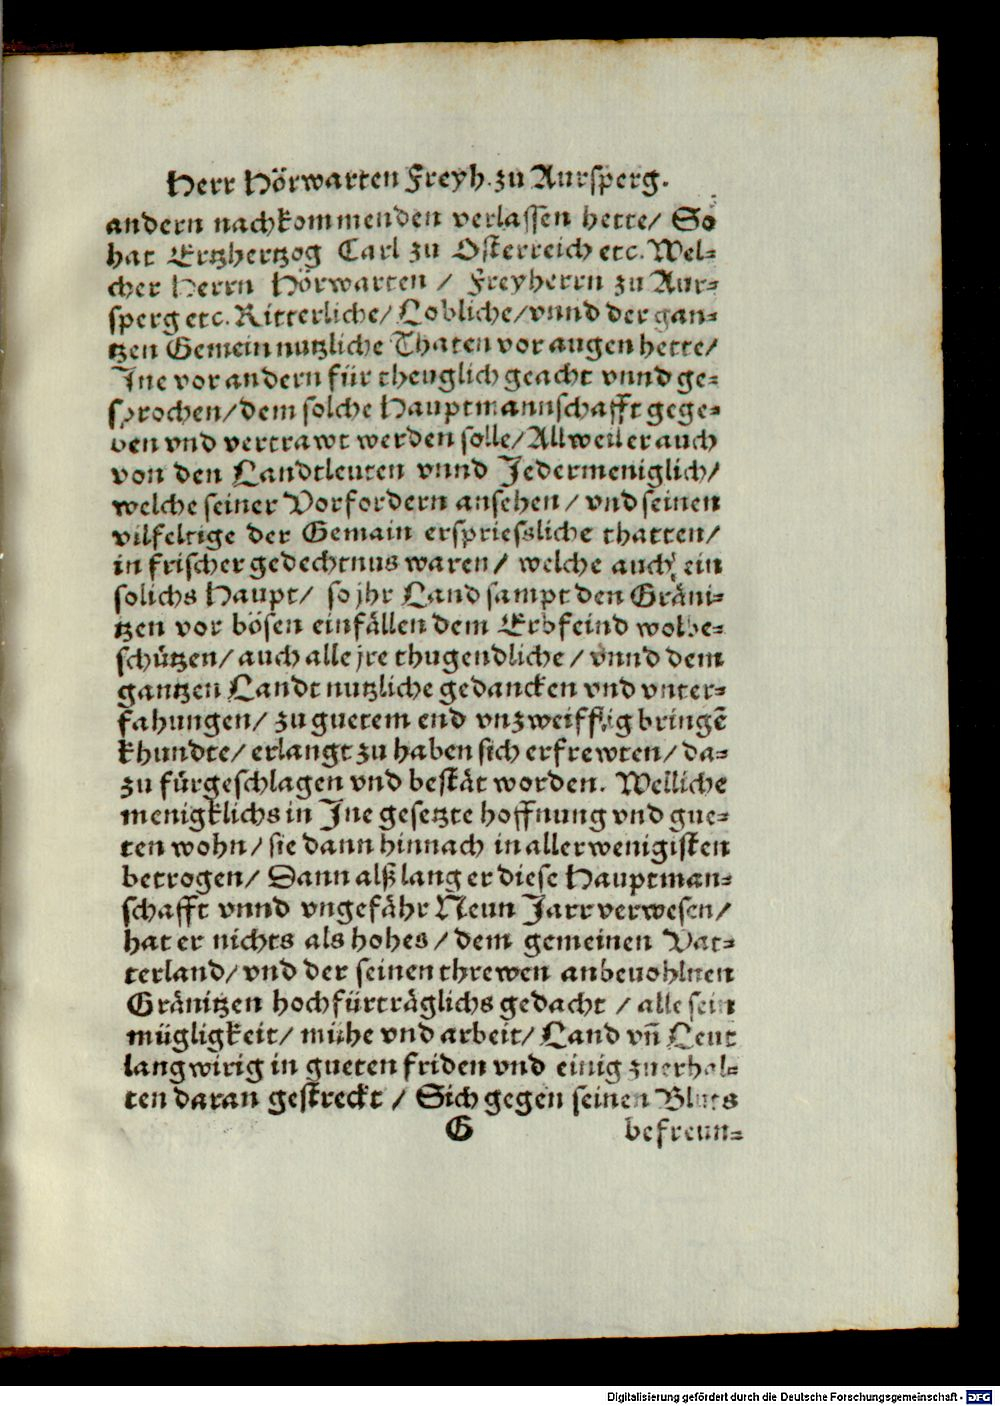 Herr Hörwarten Freyh. zu Aursperg.
andern nachkommenden verlassen hette/ So
hat Ertzhertzog Carl zu Osterreich etc. Wel-
cher Herrn Hörwarten / Freyherrn zu Aur-
sperg etc. Ritterliche/ Lobliche/ vnnd der gan-
tzen Gemein nutzliche Thaten vor augen hette/
Jne vor andern für theuglich geacht vnnd ge-
sprochen/ dem solche Hauptmannschafft gege-
ben vnd vertrawt werden solle/ Allweil er auch
von den Landtleuten vnnd Jedermeniglich/
welche seiner Vorfordern ansehen / vnd seinen
vilfeltige der Gemain erspriessliche thatten/
in frischer gedechtnus waren / welche auch ein
solichs Haupt/ so jhr Land sampt den Gräni-
tzen vor bösen einfällen dem Erbfeind wolbe-
schützen/ auch alle jre thugendliche / vnnd dem
gantzen Landt nutzliche gedancken vnd vnter-
fahungen/ zu guetem end vnzweifflig bringē
khundte/ erlangt zu haben sich erfrewten/ da-
zu fürgeschlagen vnd bestät worden. Welliche
menigklichs in Jne gesetzte hoffnung vnd gue-
ten wohn/ sie dann hinnach in aller wenigisten
betrogen/ Dann alß lang er diese Hauptman-
schafft vnnd vngefähr Neun Jarr verwesen/
hat er nichts als hohes / dem gemeinen Vat-
terland/ vnd der seinen threwen anbeuohlnen
Gränitzen hochfürträglichs gedacht / alle sein
mügligkeit/ mühe vnd arbeit/ Land vñ Leut
langwirig in gueten friden vnd einig zuerhal-
ten daran gestreckt / Sich gegen seinen Bluts
G befreun-
Digitalisierung gefördert durch die Deutsche Forschungsgemeinschaft - DFG